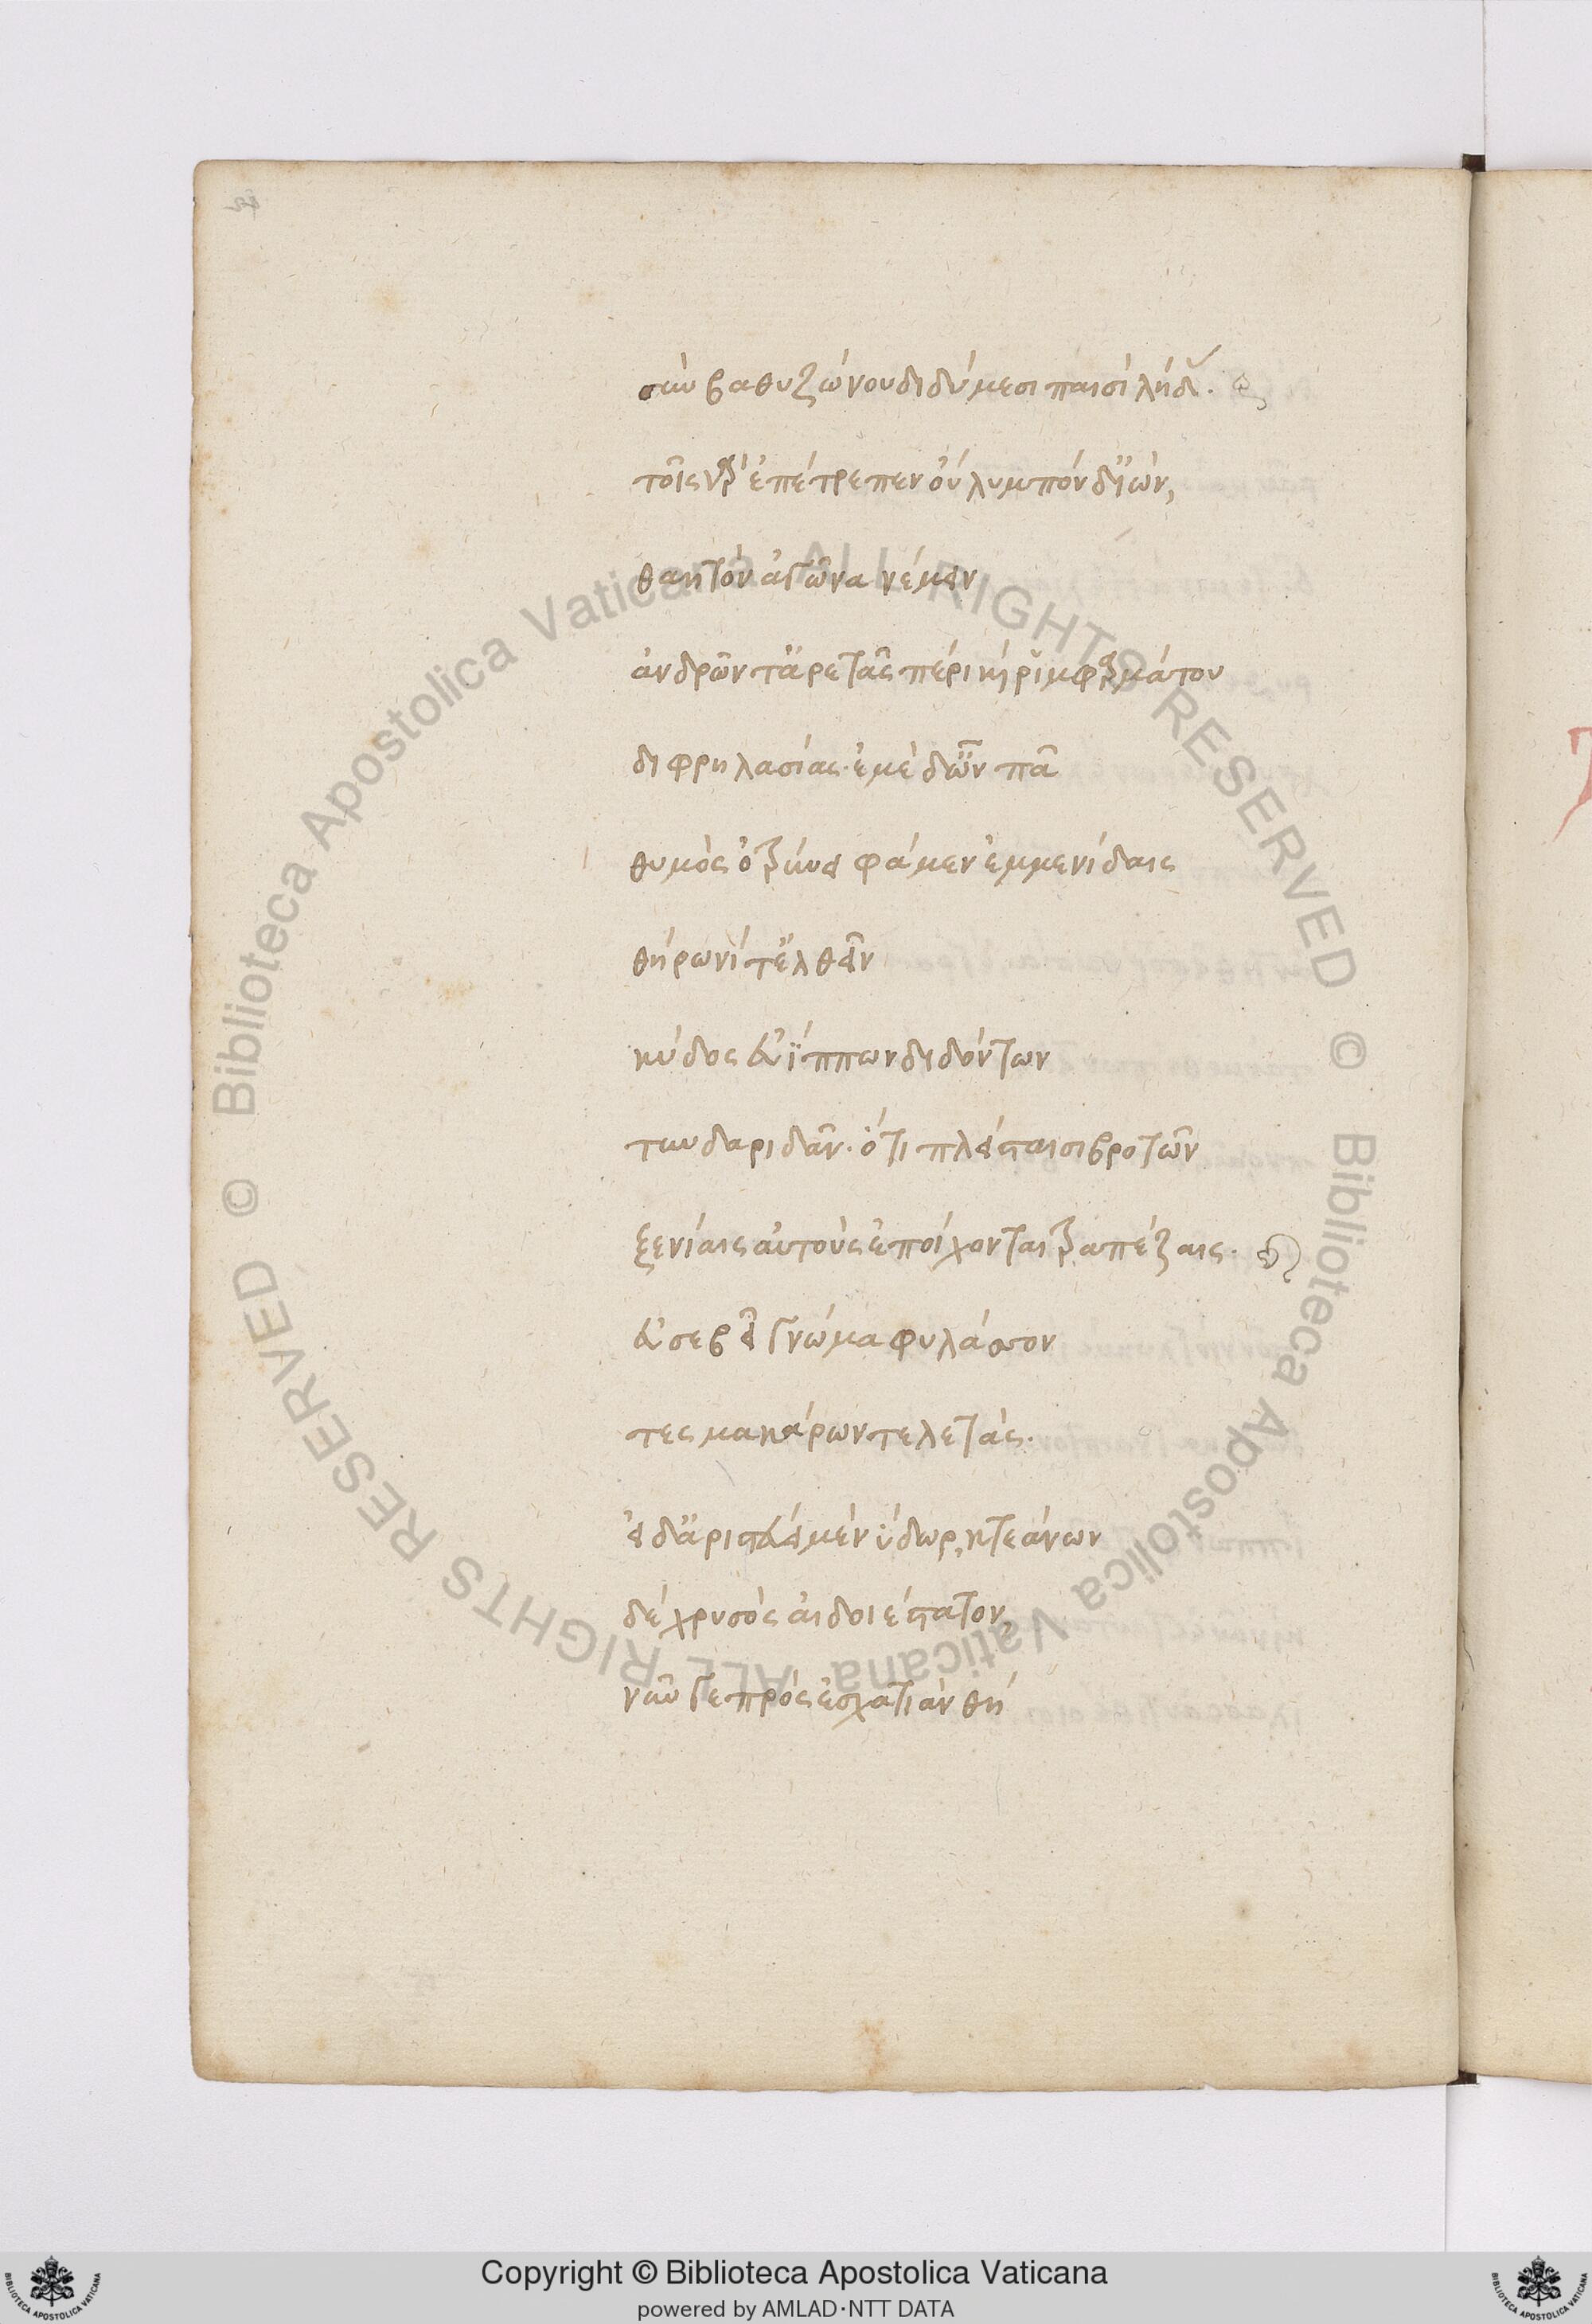 σὺν βαθυζώνου διδύμεσι παισὶ λήδας.
τοῖς γὰρ ἐπέτρεπεν οὐλυμπόνδ' ἰὼν,
θαητὸν ἀγῶνα νέμειν
ἀνδρῶν τ' ἀρετᾶς πέρι κὴ ῥιμφαρμάτου
διφρηλασίας. ἐμὲ δ' ὦν πᾶ
θυμὸς ὀτρύνει φάμεν ἐμμενίδαις
θήρωνί τ' ἐλθεῖν
κύδος εὐΐππων διδόντων
τυνδαριδᾶν. ὅτι πλείσταισι βροτῶν
ξενίαις αὐτοὺς ἐποίχονται τραπέζαις.
εὐσεβεῖ γνώμα φυλάσσον
τες μακάρων τελετάς.
εἰ δ' ἀριστεύει μὲν ὕδωρ, κτεάνων
δέ χρυσὸς αἰδοιέστατον,
νῦν γε πρὸς ἐσχατιὰν θή
Copyright © Biblioteca Apostolica Vaticana
powered by AMLAD·NTT DATA
© Biblioteca Apostolica Vaticana ALL RIGHTS RESERVED © Biblioteca Apostolica Vaticana ALL RIGHTS RESERVED